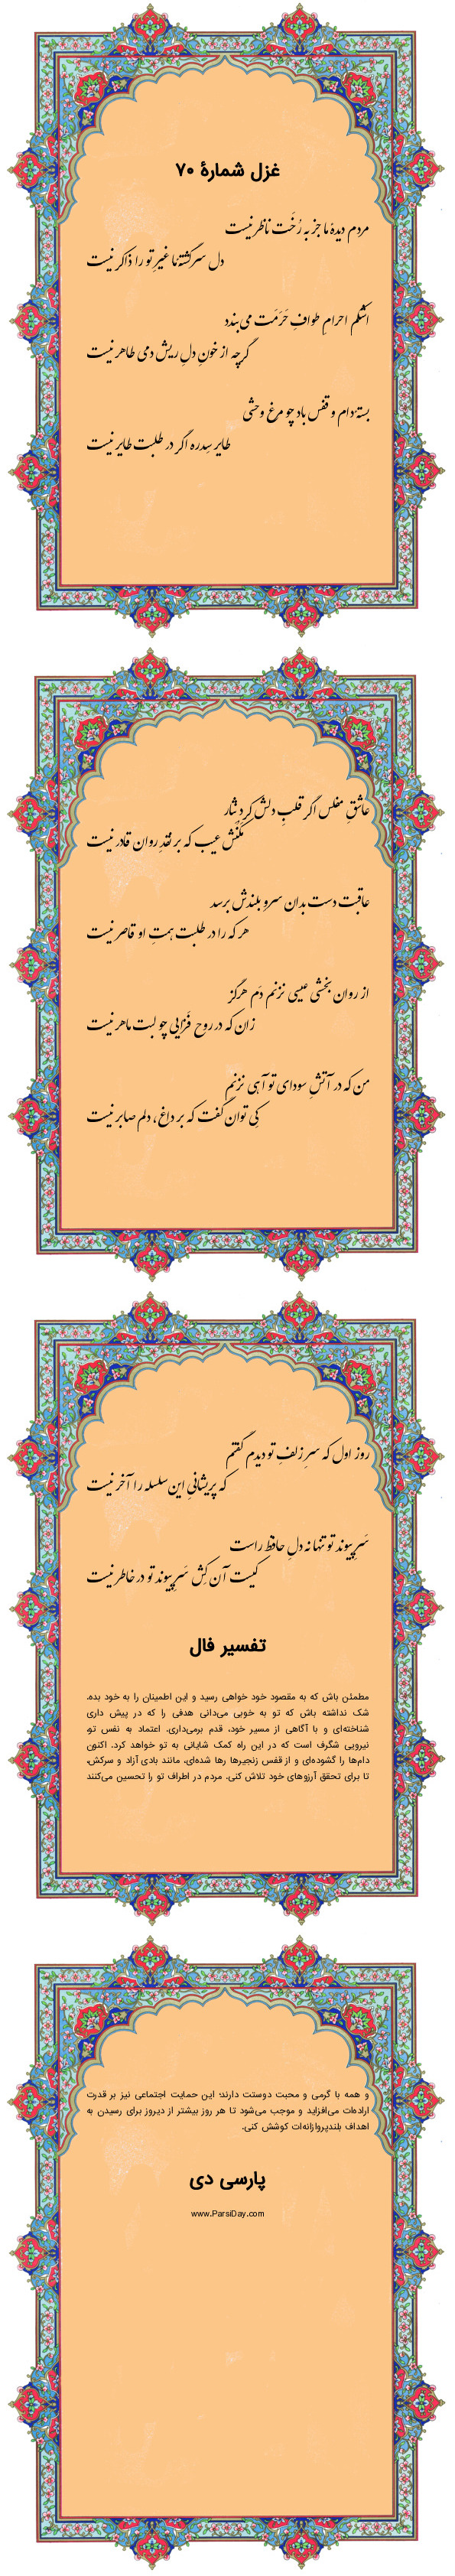 غزل شمارهٔ ۷۰
مردم دیدهٔ ما جز به رُخَت ناظر نیست
دل سرگشتهٔ ما غیرِ تو را ذاکر نیست
اشکم احرامِ طوافِ حَرَمَت می‌بندد
گرچه از خونِ دلِ ریش دمی طاهر نیست
بستهٔ دام و قفس باد چو مرغ وحشی
طایر سِدره اگر در طلبت طایر نیست
عاشقِ مفلس اگر قلبِ دلش کرد نثار
مَکُنَش عیب که بر نقدِ روان قادر نیست
عاقبت دست بدان سرو بلندش برسد
هر که را در طلبت همتِ او قاصر نیست
از روان بخشی عیسی نزنم دَم هرگز
زان که در روح فَزایی چو لبت ماهر نیست
من که در آتشِ سودای تو آهی نزنم
کِی توان گفت که بر داغ، دلم صابر نیست
روز اول که سرِ زلفِ تو دیدم گفتم
که پریشانیِ این سلسله را آخر نیست
سَرِ پیوند تو تنها نه دلِ حافظ راست
کیست آن کِش سَرِ پیوند تو در خاطر نیست
تفسیر فال
مطمئن باش که به مقصود خود خواهی رسید و این اطمینان را به خود بده.
شک نداشته باش که تو به خوبی می‌دانی هدفی را که در پیش داری
شناخته‌ای و با آگاهی از مسیر خود، قدم برمی‌داری. اعتماد به نفس تو،
نیرویی شگرف است که در این راه کمک شایانی به تو خواهد کرد. اکنون
دام‌ها را گشوده‌ای و از قفس زنجیرها رها شده‌ای، مانند بادی آزاد و سرکش،
تا برای تحقق آرزوهای خود تلاش کنی. مردم در اطراف تو را تحسین می‌کنند
و همه با گرمی و محبت دوستت دارند؛ این حمایت اجتماعی نیز بر قدرت
اراده‌ات می‌افزاید و موجب می‌شود تا هر روز بیشتر از دیروز برای رسیدن به
اهداف بلندپروازانه‌ات کوشش کنی.
پارسی دی
www.ParsiDay.com